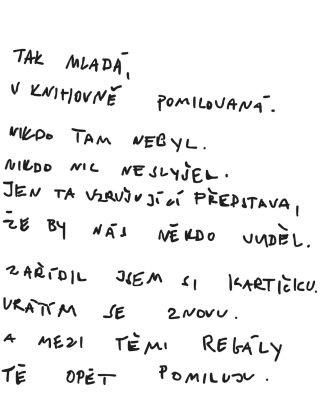 TAK MLADÁ,
V KNIHOVNĚ POMILOVANÁ.
NIKDO TAM NEBYL.
NIKDO NIC NESLYŠEL.
JEN TA VZRUŠUJÍCÍ PŘEDSTAVA,
ŽE BY NÁS NĚKDO VIDĚL.
ZAŘÍDIL JSEM SI KARTIČKU.
VRÁTÍM SE ZNOVU.
A MEZI TĚMI REGÁLY
TĚ OPĚT POMILUJU.